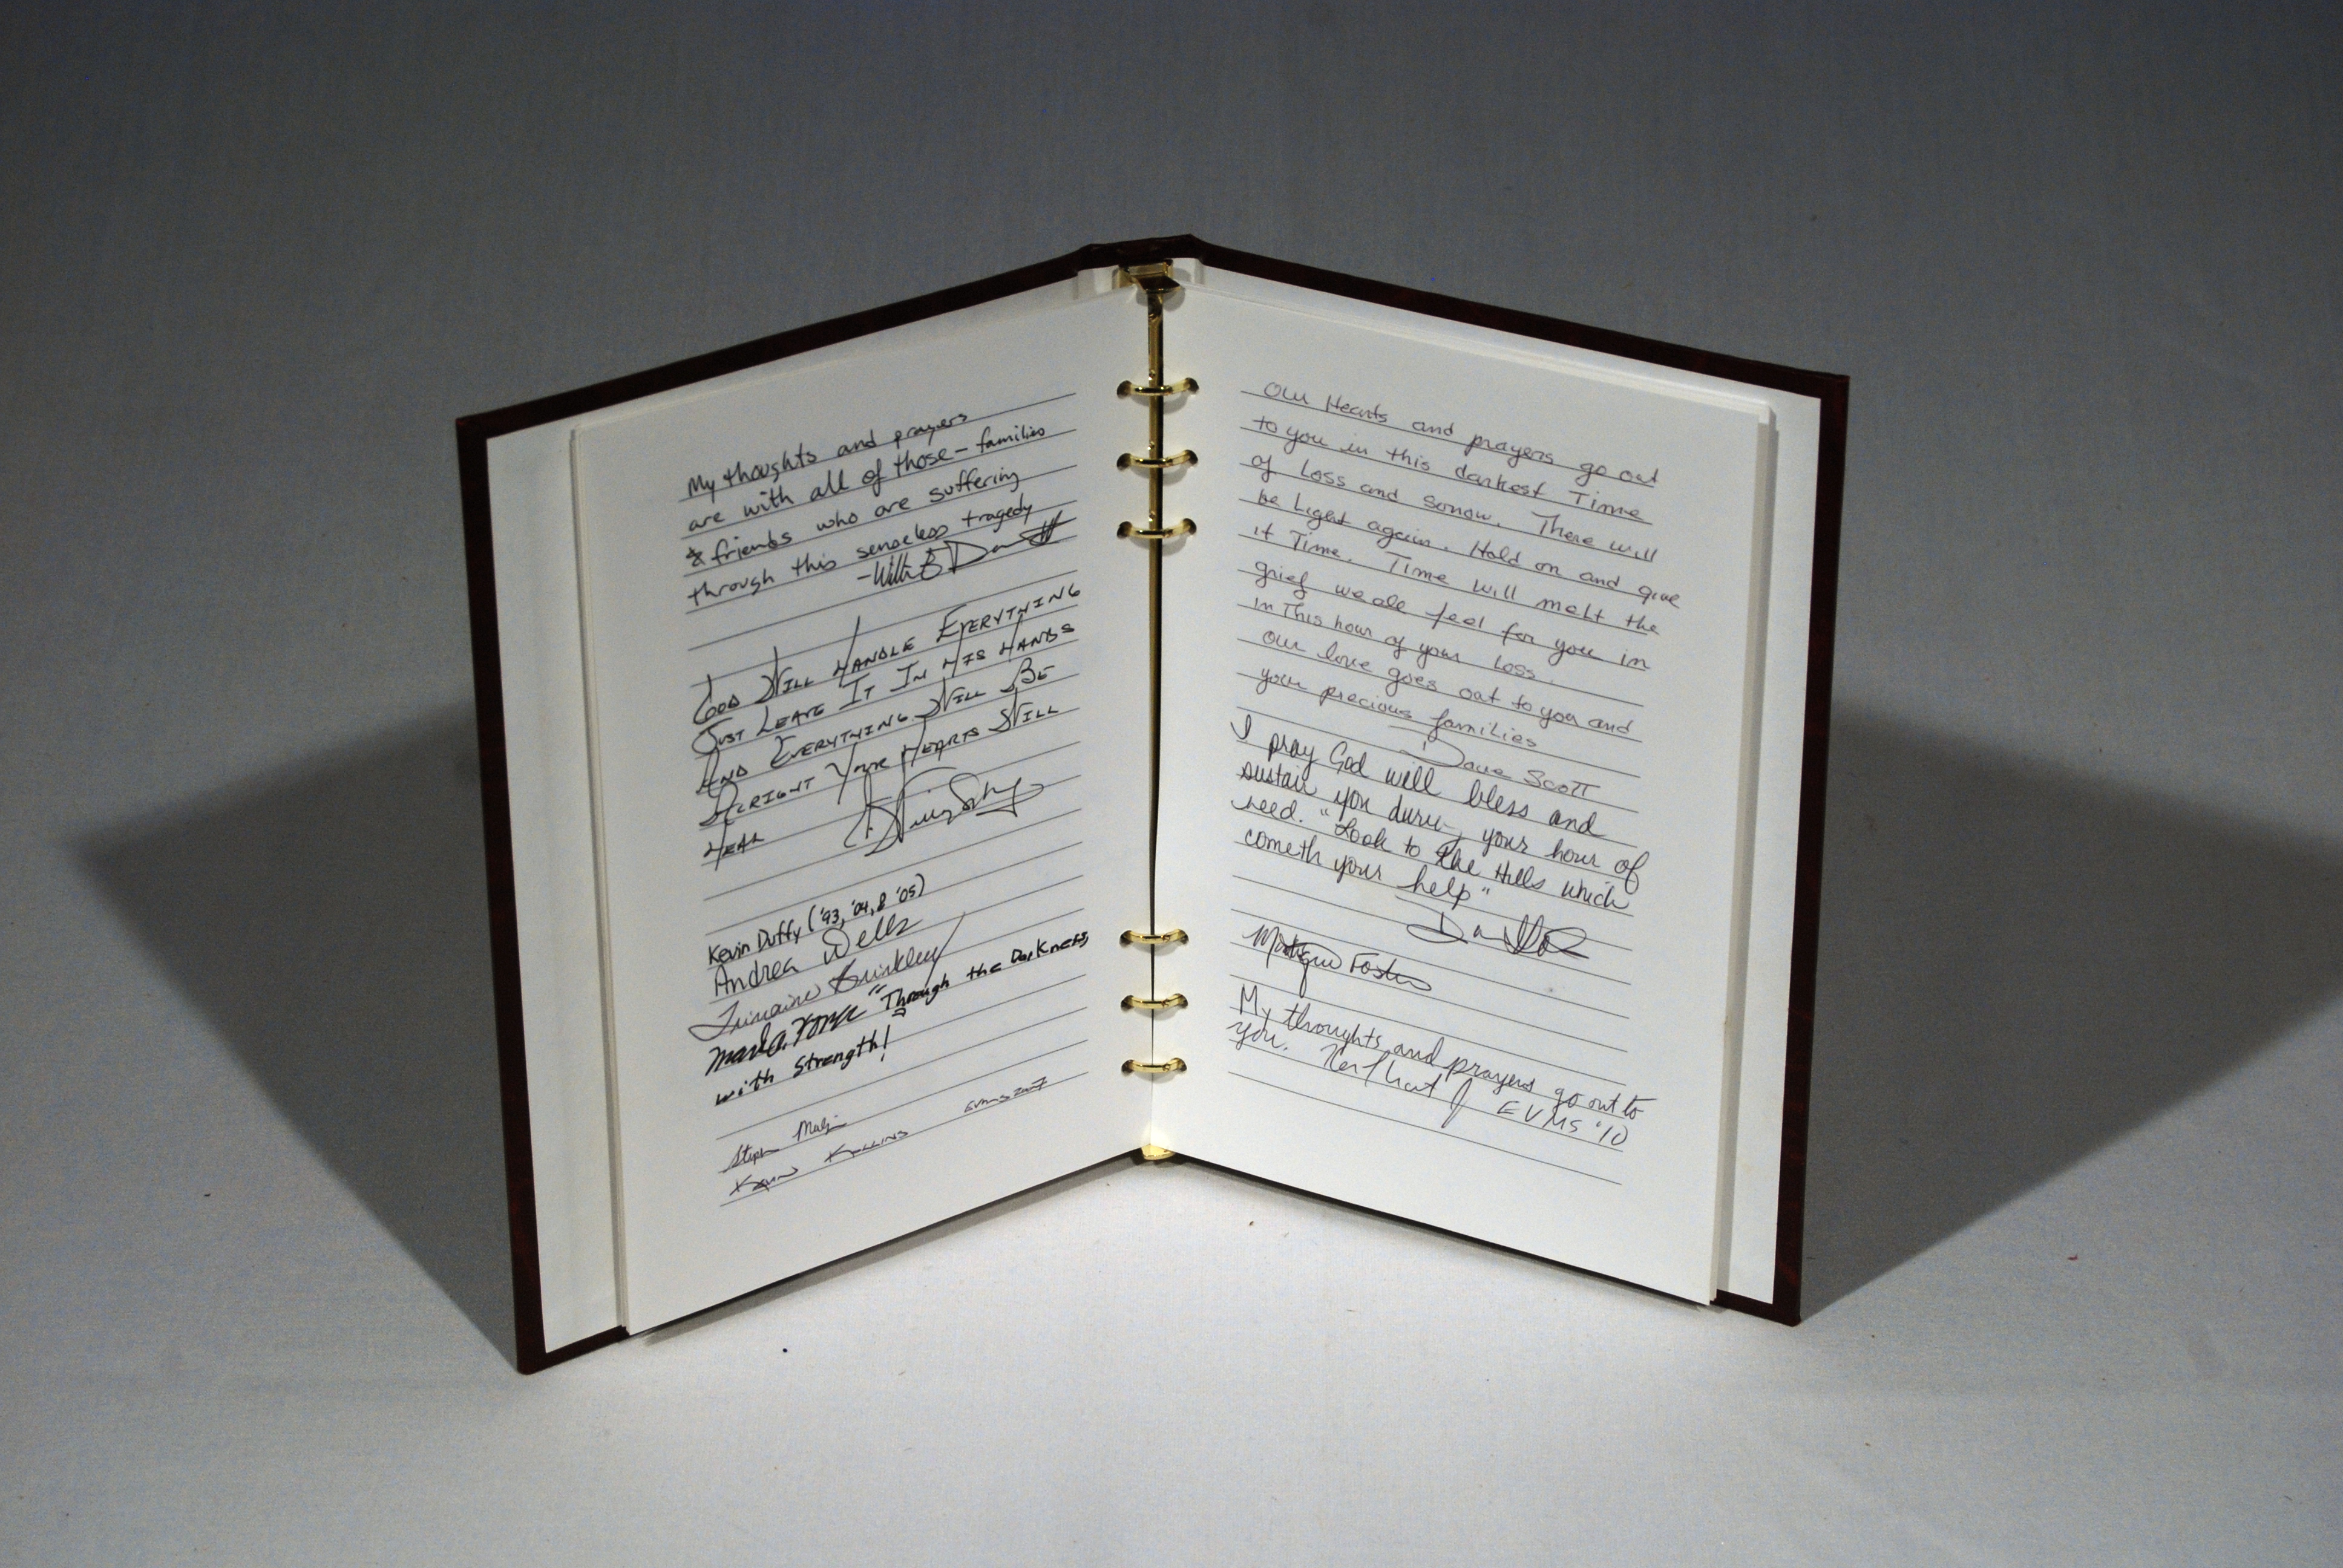 My thoughts and prayers
are with all of those - families
& friends who are suffering
through this senseless tragedy
God Will Handle Everything
Just Leave It In His Hands
And Everything Will Be
Alright Your Hearts Will
Heal
Kevin Duffy ('93, '04, & '05)
Andrea Wells
Brinkley
"Through the Darkness,
with Strength!
EVMS 2007
Our Hearts and prayers go out
to you in this darkest Time
of Loss and sorrow. There will
be Light again. Hold on and give
it Time. Time will melt the
grief we all feel for you in
in This hour of your Loss.
Our love goes out to you and
your precious families
Dave Scott
I pray God will bless and
sustain you during your hour of
need. "Look to the Hills which
cometh your help"
My thoughts and prayers go out to
you. EVMS '10